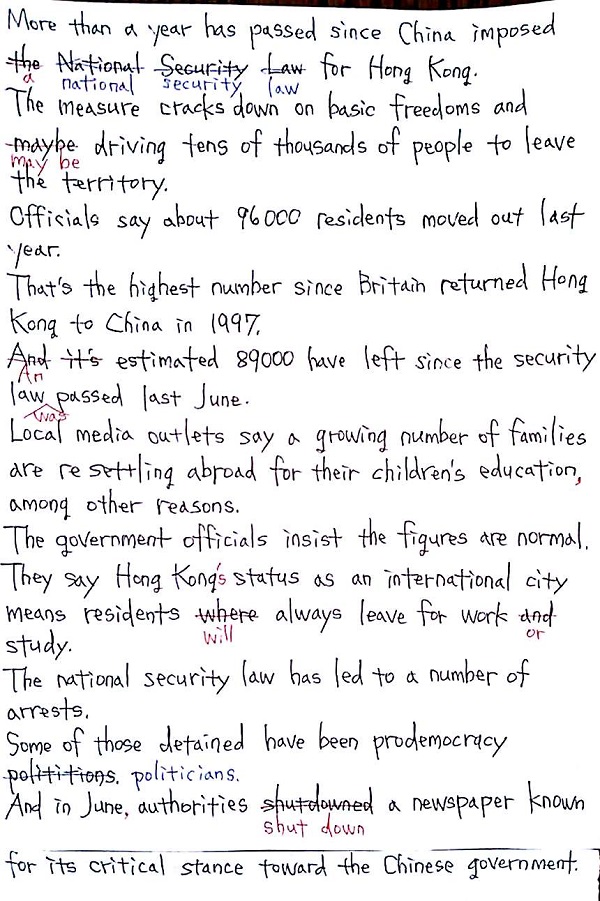 More than a year has passed since China imposed
the National Security Law for Hong Kong.
a national security law
The measure cracks down on basic freedoms and
maybe driving tens of thousands of people to leave
may be
the territory.
Officials say about 96000 residents moved out last
year.
That's the highest number since Britain returned Hong
Kong to China in 1997.
And it's estimated 89000 have left since the security
An
law passed last June.
was
Local media outlets say a growing number of families
are resettling abroad for their children's education,
among other reasons.
The government officials insist the figures are normal.
They say Hong Kong's status as an international city
means residents where always leave for work and
will or
study.
The national security law has led to a number of
arrests.
Some of those detained have been prodemocracy
polititions. politicians.
And in June, authorities shutdowned a newspaper known
shut down
for its critical stance toward the Chinese government.